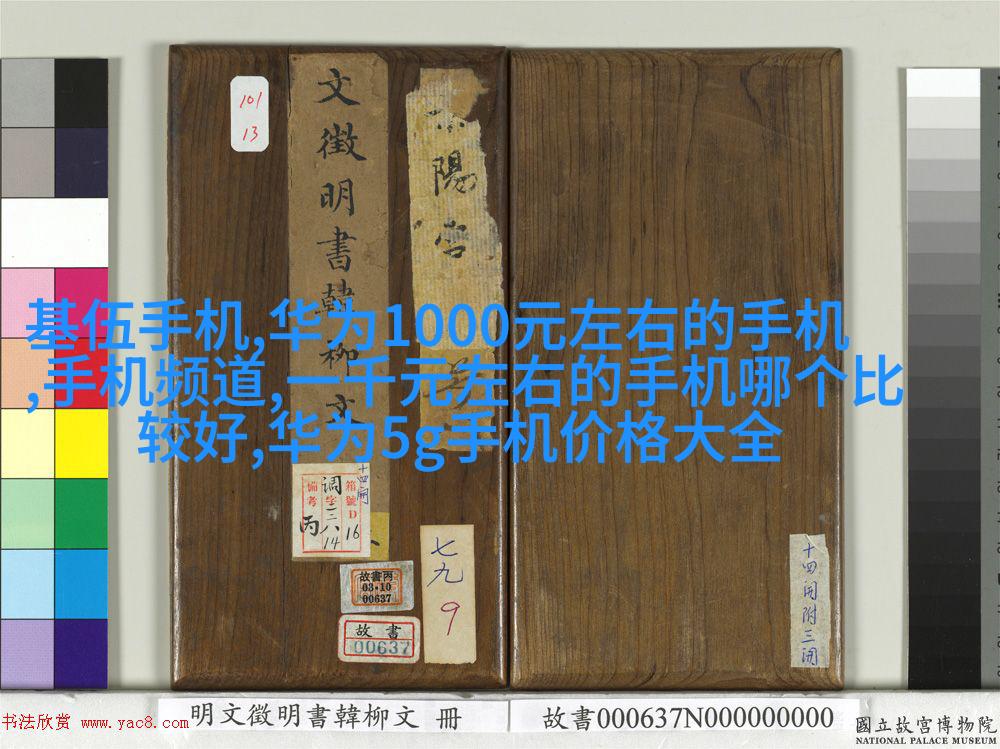 101
13
文徵明書韓柳文
陽宫
基伍手机,华为1000元左右的手机
,手机频道,一千元左右的手机哪个比
较好,华为5g手机价格大全
十四開
箱號D16
调字三八14
備考丙
故書丙
03-10
00637
故書
00637
七九
9
十四開附三開
明文徵明書韓柳文 冊
故書000637N000000000
书法欣赏 www.yac8.com
國立故宮博物院
NATIONAL PALACE MUSEUM